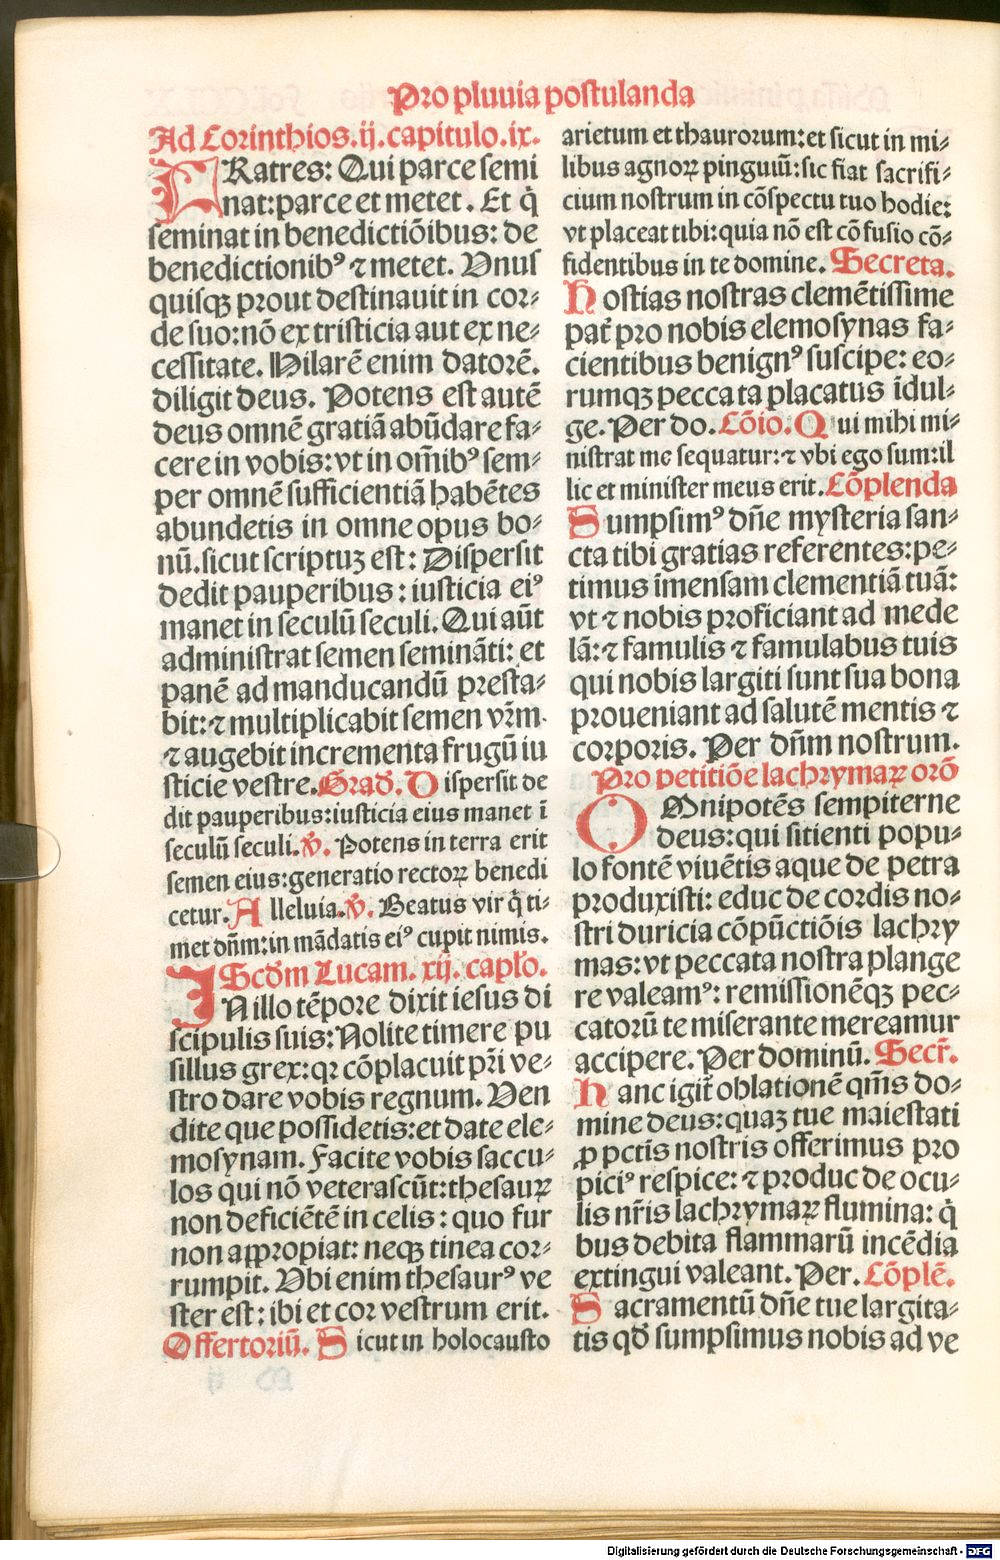 Pro pluuia postulanda
Ad Corinthios.ij.capitulo.ix.
FRatres: Qui parce semi
nat:parce et metet. Et q̄
seminat in benedictiōibus: de
benedictionibꝰ ⁊ metet. Vnus
quisqꝫ prout destinauit in cor⸗
de suo:nō ex tristicia aut ex ne⸗
cessitate. Hilarē enim datorē.
diligit deus. Potens est autē
deus omnē gratiā abūdare fa⸗
cere in vobis:vt in om̄ibꝰ sem⸗
per omnē sufficientiā habētes
abundetis in omne opus bo⸗
nū.sicut scriptuꝫ est: Dispersit
dedit pauperibus: iusticia eiꝰ
manet in seculū seculi. Qui aūt
administrat semen semināti: et
panē ad manducandū presta⸗
bit:⁊ multiplicabit semen vr̄m.
⁊ augebit incrementa frugū iu
sticie vestre.Grad̄. Dispersit de
dit pauperibus:iusticia eius manet ī
seculū seculi.v̄. Potens in terra erit
semen eius:generatio rectoꝝ benedi
cetur.Alleluia.v̄. Beatus vir q̄ ti⸗
met dn̄m:in mādatis eiꝰ cupit nimis.
Scd̄m Lucam. xij. capl̄o.
IN illo tēpore dixit iesus di
scipulis suis: Nolite timere pu
sillus grex:qꝛ cōplacuit pr̄i ve⸗
stro dare vobis regnum. Ven
dite que possidetis:et date ele⸗
mosynam. Facite vobis saccu⸗
los qui nō veterascūt:thesauꝝ
non deficiētē in celis: quo fur
non appropiat: neqꝫ tinea cor⸗
rumpit. Vbi enim thesaurꝰ ve
ster est: ibi et cor vestrum erit.
Offertoriū. Sicut in holocausto
arietum et thaurorum:et sicut in mi⸗
libus agnoꝝ pinguiū:sic fiat sacrifi⸗
cium nostrum in cōspectu tuo hodie:
vt placeat tibi:quia nō est cōfusio cō⸗
fidentibus in te domine. Secreta.
Hostias nostras clemētissime
pat̄ pro nobis elemosynas fa⸗
cientibus benignꝰ suscipe: eo⸗
rumqꝫ peccata placatus īdul⸗
ge. Per do. Cōio. Qui mihi mi⸗
nistrat me sequatur:⁊ vbi ego sum:il
lic et minister meus erit. Cōplenda
Sumpsimꝰ dn̄e mysteria san⸗
cta tibi gratias referentes:pe⸗
timus īmensam clementiā tuā:
vt ⁊ nobis proficiant ad mede
lā:⁊ famulis ⁊ famulabus tuis
qui nobis largiti sunt sua bona
proueniant ad salutē mentis ⁊
corporis. Per dn̄m nostrum.
Pro petitiōe lachrymaꝝ orō
OMnipotēs sempiterne
deus:qui sitienti popu⸗
lo fontē viuētis aque de petra
produxisti: educ de cordis no⸗
stri duricia cōpūctiōis lachry
mas:vt peccata nostra plange
re valeamꝰ: remissionēqꝫ pec⸗
catorū te miserante mereamur
accipere. Per dominū. Secr̄.
Hanc igit̄ oblationē qm̄s do⸗
mine deus:quaꝫ tue maiestati
ꝓ pctīs nostris offerimus pro
piciꝰ respice: ⁊ produc de ocu⸗
lis nr̄is lachrymaꝝ flumina: q̄
bus debita flammarū incēdia
extingui valeant. Per. Cōplē.
Sacramentū dn̄e tue largita⸗
tis qd̄ sumpsimus nobis ad ve
Digitalisierung gefördert durch die Deutsche Forschungsgemeinschaft - DFG